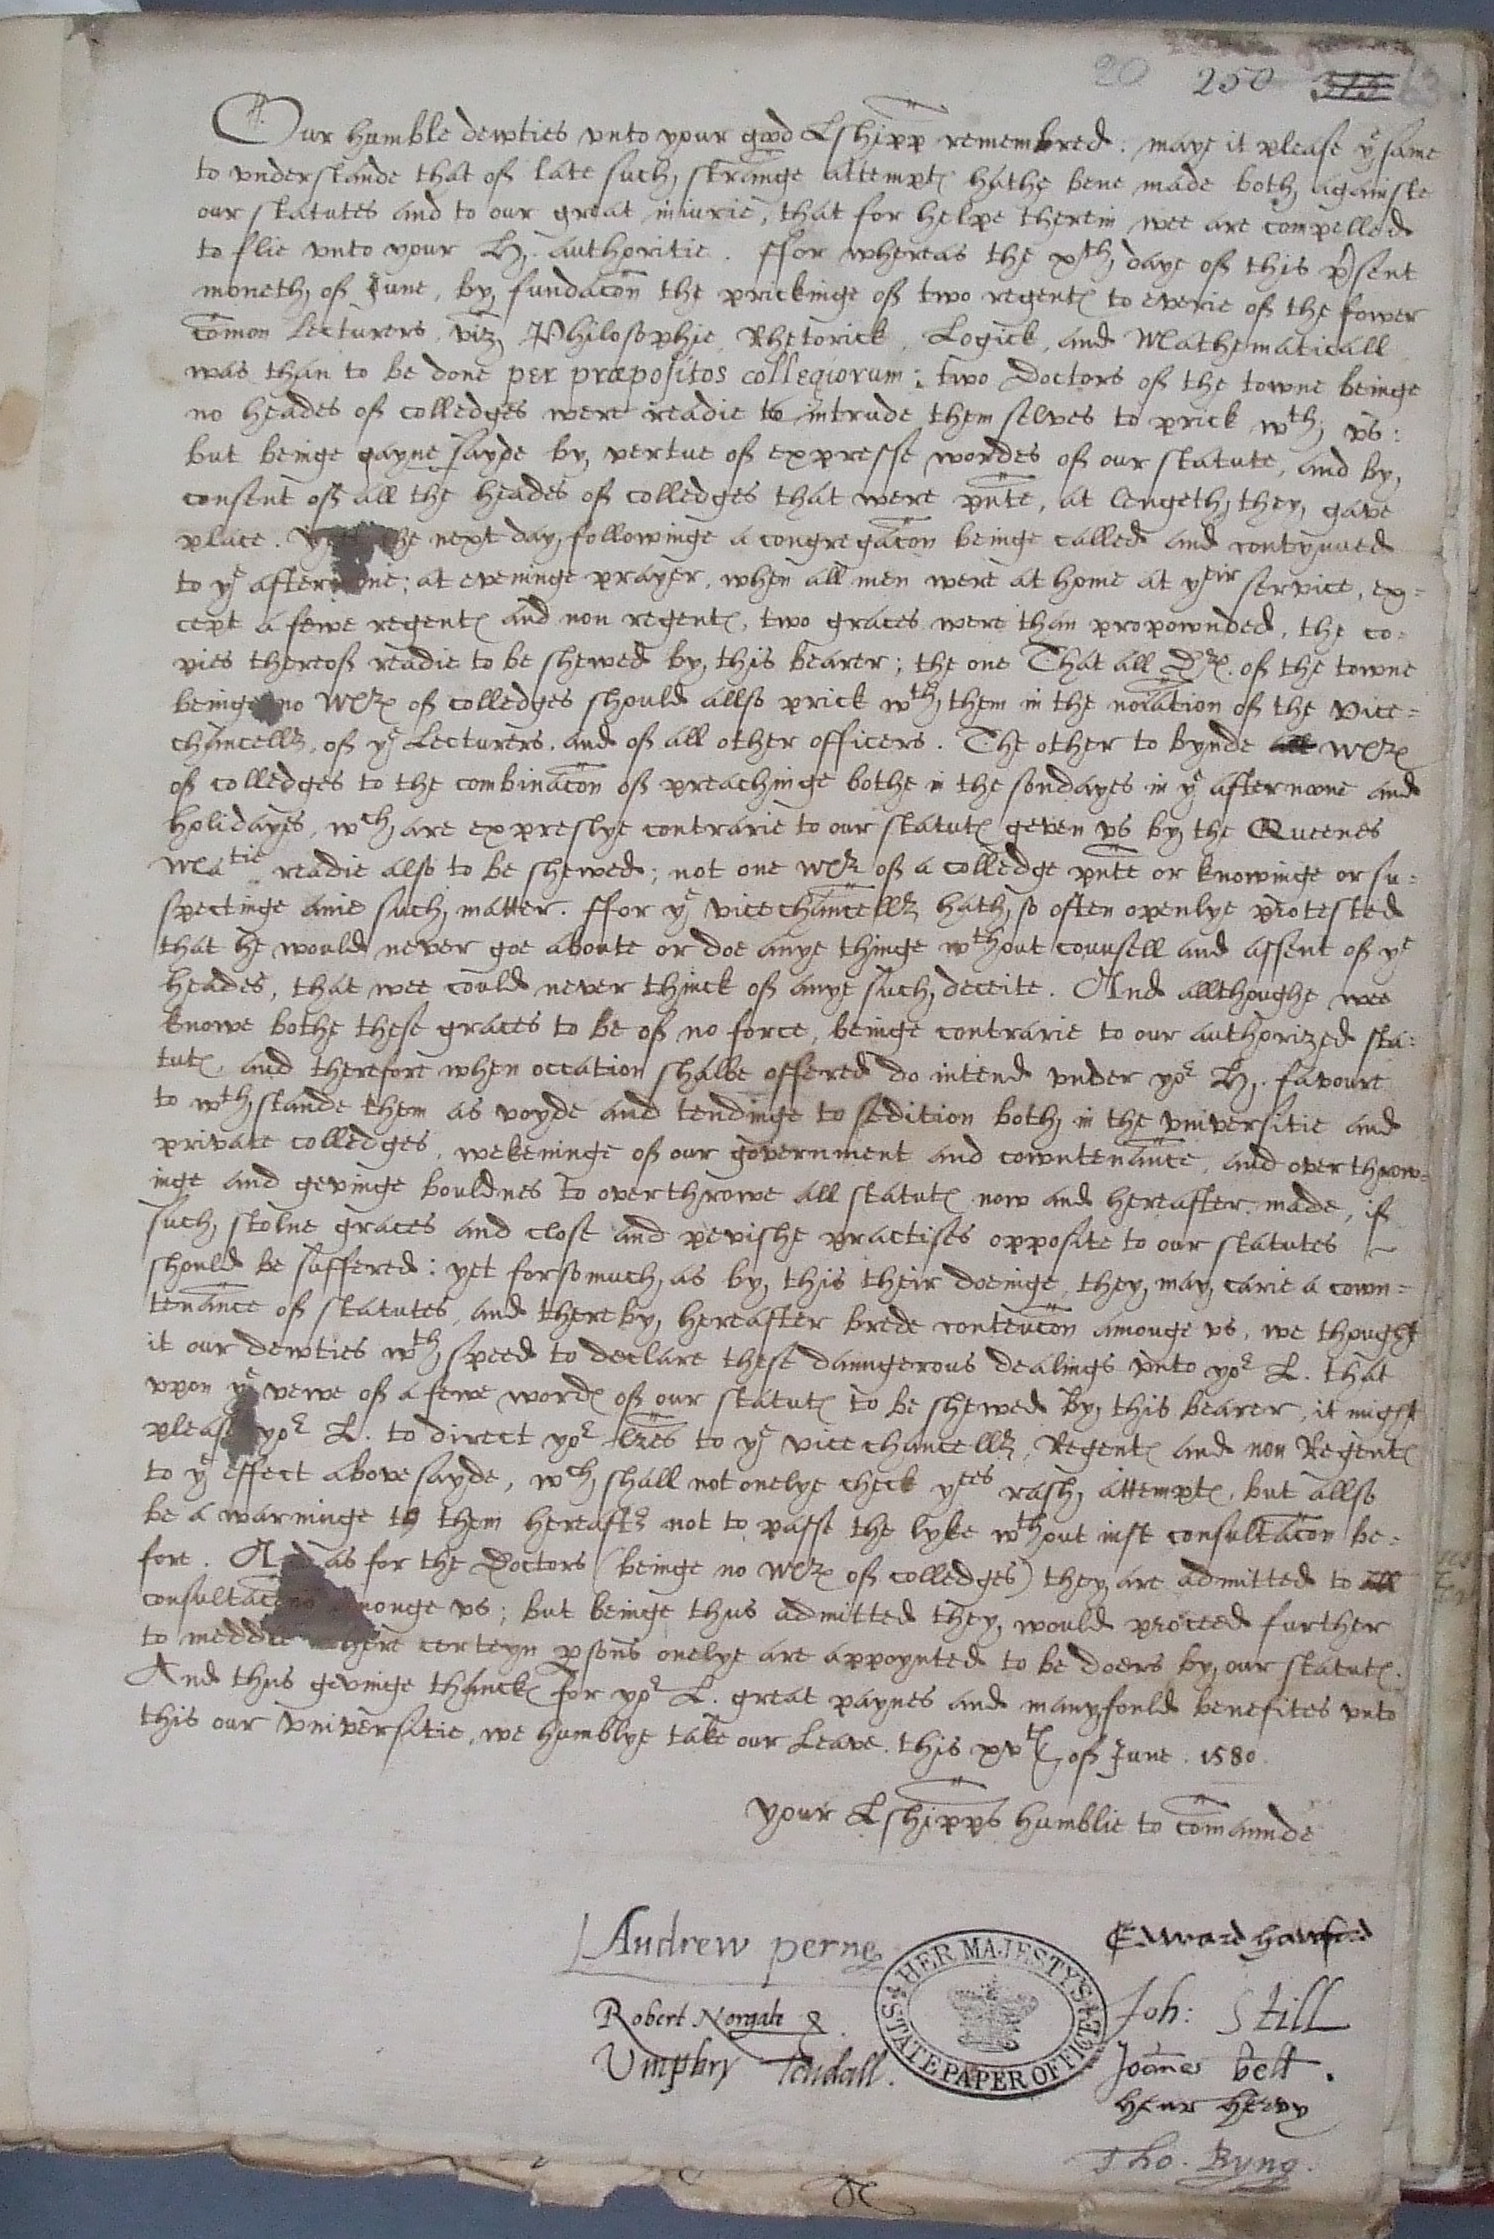 20 250 315
Our humble dewties vnto your good Lshipp remembred: maye it please yͤ same
to vnderstande that of late such strainge attemptꝭ hathe bene made both againste
our statutes and to our great iniurie, that for helpe therein wee are compelled
to flie vnto your H. authoritie. Ffor whereas the xth daye of this p̃sent
moneth of June, by fundac̃on the prickinge of two regentꝭ to everie of the fower
com̃on Lecturers, viz, Philosophie, Rhetorick, Logick, and Mathematicall
was than to be done per præpositos collegiorum: two Doctors of the towne beinge
no heades of colledges were readie to intrude them selves to prick wth vs:
but beinge gayne sayde by vertue of expresse wordes of our statute, and by
consent of all the heades of colledges that were pn̄te, at length they gave
place. the next day followinge a congregac̃on beinge called and contynued
to yͤ afternone; at eveninge prayer, when all men were at home at yeir service, ex=
cept a fewe regentꝭ and non regentꝭ, two graces were than propownded, the co=
pies thereof readie to be shewed by this bearer; the one That all Drꝭ. of the towne
beinge no Mrꝭ of colledges should allso prick wth them in the no͞iation of the Vice=
chancellr, of yͤ Lecturers, and of all other officers. The other to bynde all Mrꝭ
of colledges to the combinac̃on of preachinge bothe in the sondayes in yͤ afternoone and
holidayes, wch are expreslye contrarie to our statutꝭ geven vs by the Queenes
Matie readie also to be shewed; not one Mr of a colledge pn̄te or knowinge or su=
spectinge anie such matter. Ffor yͤ vicechancellr hath so often openlye protested
that he would never goe aboute or doe anye thinge wthout counsell and assent of yͤ
heades, that wee could never thinck of anye such deceite. And allthoughe wee
knowe bothe these graces to be of no force, beinge contrarie to our authorized sta=
tutꝭ, and therefore when occation shalbe offered do intend vnder yor H. favoure
to wthstande them as voyde and tendinge to sedition both in the vniversitie and
private colledges, wekeninge of our government and cowntenance, and overthrow=
inge and gevinge bouldnes to overthrowe all statutꝭ now and hereafter made, if
such stolne graces and close and pevishe practises opposite to our statutes
should be suffered: yet forsomuch as by this their doeinge they may carie a cown=
tenance of statutes, and thereby hereafter brede contenc̃on amonge vs, we thought
it our dewties wth speed to declare these daungerous dealings vnto yor L. that
vpon yͤ vewe of a fewe wordꝭ of our statutꝭ to be shewed by this bearer, it might
please yor L. to direct yor l͞res to yͤ vicechancellr, Regentꝭ and non Regentꝭ
to yͤ effect above sayde, wch shall not onelye check yees rash attemptꝭ, but allso
be a warninge to them hereaftr not to passe the lyke wthout iust consultac̃on be=
fore. And as for the Doctors (beinge no Mrꝭ of colledges) they are admitted to all
consultac̃ons amonge vs; but beinge thus admitted they would proceed further
to meddle where certeyn p̱sons onelye are appoynted to be doers by our statutꝭ.
And thus gevinge thanckꝭ for yor L. great paynes and manyfould benefites vnto
this our vniversitie, we humblye take our leave. this xvth of June. 1580.
your Lshipps humblie to com̃aunde
Andrew perne
Edward hawford
Robert Norgate
Joh: Still
Vmphry Tendall.
Joan̄es bell.
Henr Hervy
Tho. Byng.
HER MAJESTY'S STATE PAPER OFFICE